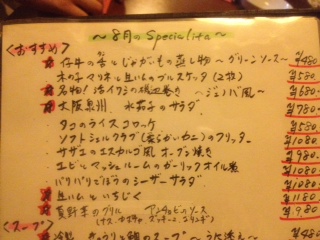 ～8月のSpecialita～
<おすすめ>
仔牛の舌とじゃがいもの蒸し物～グリーンソース～ ¥480
木の子マリネと生ハムのブルスケッタ(2枚) ¥580
名物! 活イワシの磯辺巻き～ジェノバ風～ ¥680
大阪泉州 水茄子のサラダ ¥780
タコのライスコロッケ ¥580
ソフトシェルクラブ(柔らかいカニ)のフリッター ¥1080
サザエのエスカルゴ風 オーブン焼き ¥980
エビとマッシュルームのガーリックオイル煮 ¥1080
バリバリごぼうのシーザーサラダ ¥980
生ハムといちじく ¥1180
夏野菜のグリル アンチョビのソース ¥980
<スープ>
冷製